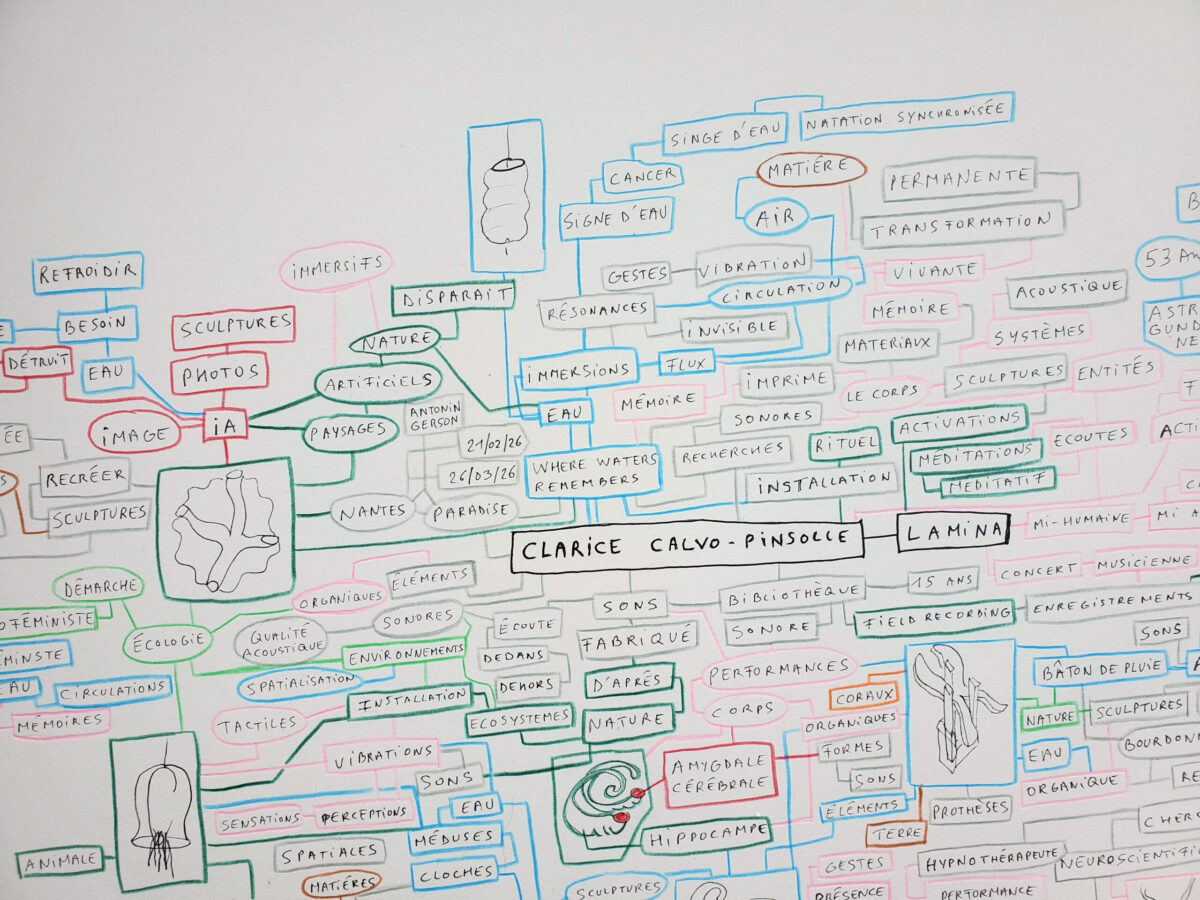 SINGE D'EAU
NATATION SYNCHRONISÉE
CANCER
MATIÉRE
PERMANENTE
SIGNE D'EAU
AIR
TRANSFORMATION
REFROIDIR
IMMERSIFS
GESTES
VIBRATION
VIVANTE
53 AN
DISPARAIT
CIRCULATION
ACOUSTIQUE
RÉSONANCES
MÉMOIRE
BESOIN
SCULPTURES
INVISIBLE
SYSTÈMES
ASTR
GUND
NE
NATURE
MATERIAUX
DÉTRUIT
EAU
PHOTOS
ARTIFICIELS
IMMERSIONS
FLUX
IMPRIME
LE CORPS
SCULPTURES
ENTITÉS
IMAGE
IA
PAYSAGES
ANTONIN
GERSON
EAU
MÉMOIRE
SONORES
ACTIVATIONS
21/02/26
RECHERCHES
RITUEL
ECOUTES
MÉDITATIONS
RECRÉER
26/03/26
WHERE WATERS
REMEMBERS
INSTALLATION
MEDITATIF
SCULPTURES
NANTES
PARADISE
CLARICE CALVO-PINSOLLE
LAMINA
MI-HUMAINE
MI A
DÉMARCHE
ÉLÉMENTS
ORGANIQUES
BIBLIOTHÈQUE
15 ANS
CONCERT
MUSICIENNE
OFÉMINISTE
SONORES
SONS
SONORE
FIELD RECORDING
ENREGISTREMENTS
ÉCOLOGIE
QUALITÉ
ACOUSTIQUE
ÉCOUTE
FABRIQUÉ
SONS
ÉMINSTE
ENVIRONNEMENTS
DEDANS
PERFORMANCES
BÂTON DE PLUIE
EAU
CIRCULATIONS
SPATIALISATION
DEHORS
D'APRÉS
CORAUX
MÉMOIRES
TACTILES
INSTALLATION
ECOSYSTEMES
NATURE
CORPS
ORGANIQUES
NATURE
SCULPTURES
VIBRATIONS
SONS
AMYGDALE
CÉRÉBRALE
FORMES
EAU
BOURDONN
SONS
ORGANIQUE
SENSATIONS
PERCEPTIONS
EAU
ÉLÉMENTS
PROTHÈSES
MÉDUSES
HIPPOCAMPE
TERRE
CHERC
ANIMALE
SPATIALES
MATIÉRES
CLOCHES
SCULPTURES
GESTES
HYPNOTHÉRAPEUTE
NEUROSCIENTIFI
PRÉSENCE
PERFORMANCE